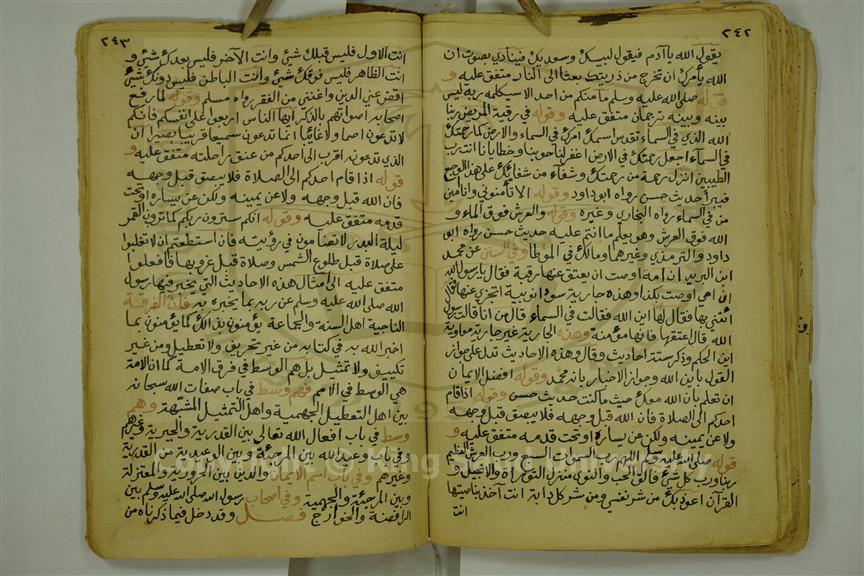 ٢٤٢
يقول الله يا آدم فيقول لبيك وسعديك فينادي بصوت ان
الله يأمرك ان تخرج من ذريتك بعثا الى النار متفق عليه و
قوله صلى الله عليه وسلم ما منكم من احد الا سيكلمه ربه ليس
بينه وبينه ترجمان متفق عليه وقوله في رقية المريض ربنا
الله الذي في السماء تقدس اسمك امرك في السماء والارض كما رحمتك
في السماء اجعل رحمتك في الارض اغفر لنا حوبنا وخطايانا انت رب
الطيبين انزل رحمة من رحمتك وشفاء من شفائك على هذا الوجع
فيبرأ حديث حسن رواه ابو داود وقوله الا تأمنوني وانا امين
من في السماء رواه البخاري وغيره وقوله والعرش فوق الماء و
الله فوق العرش وهو يعلم ما انتم عليه حديث حسن رواه ابو
داود والترمذي وغيرهما ومالك في الموطا وفي السنن عن محمد
ابن الشريد ان امه اوصت ان يعتق عنها رقبة فقال يا رسول الله
ان امي اوصت بكذا وهذه جارية سوداء نوبية اتجزي عنها قال
ائتني بها فقال لها اين الله فقالت في السماء قال من انا قالت رسول
الله قال اعتقها فانها مؤمنة وهذه الجارية غير جارية معاوية
ابن الحكم وذكر ستة احاديث وقال وهذه الاحاديث تدل على جواز
القول باين الله وجواز الاخبار بانه وقوله افضل الايمان
ان تعلم بان الله معك حيث ما كنت حديث حسن وقوله اذا قام
احدكم الى الصلاة فان الله قبل وجهه فلا يبصق قبل وجهه
ولا عن يمينه ولكن عن يساره او تحت قدمه متفق عليه و
قوله صلى الله عليه وسلم اللهم رب السموات السبع ورب العرش العظيم
ربنا ورب كل شيء فالق الحب والنوى منزل التوراة والانجيل و
القرآن اعوذ بك من شر نفسي ومن شر كل دابة انت آخذ بناصيتها
انت
٢٤٣
انت الاول فليس قبلك شيء وانت الآخر فليس بعدك شيء و
انت الظاهر فليس فوقك شيء وانت الباطن فليس دونك شيء
اقض عني الدين واغنني من الفقر رواه مسلم وقوله لما رفع
اصحابه اصواتهم بالذكر ايها الناس اربعوا على انفسكم فانكم
لا تدعون اصما ولا غائبا انما تدعون سميعا قريبا بصيرا ان
الذي تدعونه اقرب الى احدكم من عنق راحلته متفق عليه و
قوله اذا قام احدكم الى الصلاة فلا يبصق قبل وجهه
فان الله قبل وجهه ولا عن يمينه ولكن عن يساره او تحت
قدمه متفق عليه وقوله انكم سترون ربكم كما ترون القمر
ليلة البدر لا تضامون في رؤيته فان استطعتم ان لا تغلبوا
على صلاة قبل طلوع الشمس وصلاة قبل غروبها فافعلوا
متفق عليه الى امثال هذه الاحاديث التي يخبر فيها رسول
الله صلى الله عليه وسلم عن ربه بما يخبر به فان الفرقة
الناجية اهل السنة والجماعة يؤمنون بذلك كما يؤمنون بما
اخبر الله به في كتابه من غير تحريف ولا تعطيل ومن غير
تكييف ولا تمثيل بل هم الوسط في فرق الامة كما ان الامة
هي الوسط في الامم فهم وسط في باب صفات الله سبحانه
بين اهل التعطيل الجهمية واهل التمثيل المشبهة وهم
وسط في باب افعال الله تعالى بين القدرية والجبرية وغيرهم
وفي باب وعيد الله بين المرجئة وبين الوعيدية من القدرية
وغيرهم وفي باب اسم الايمان والدين بين الحرورية والمعتزلة
وبين المرجئة والجهمية وفي اصحاب رسول الله صلى الله عليه وسلم بين
الرافضة والخوارج فصل وقد دخل فيما ذكرناه من